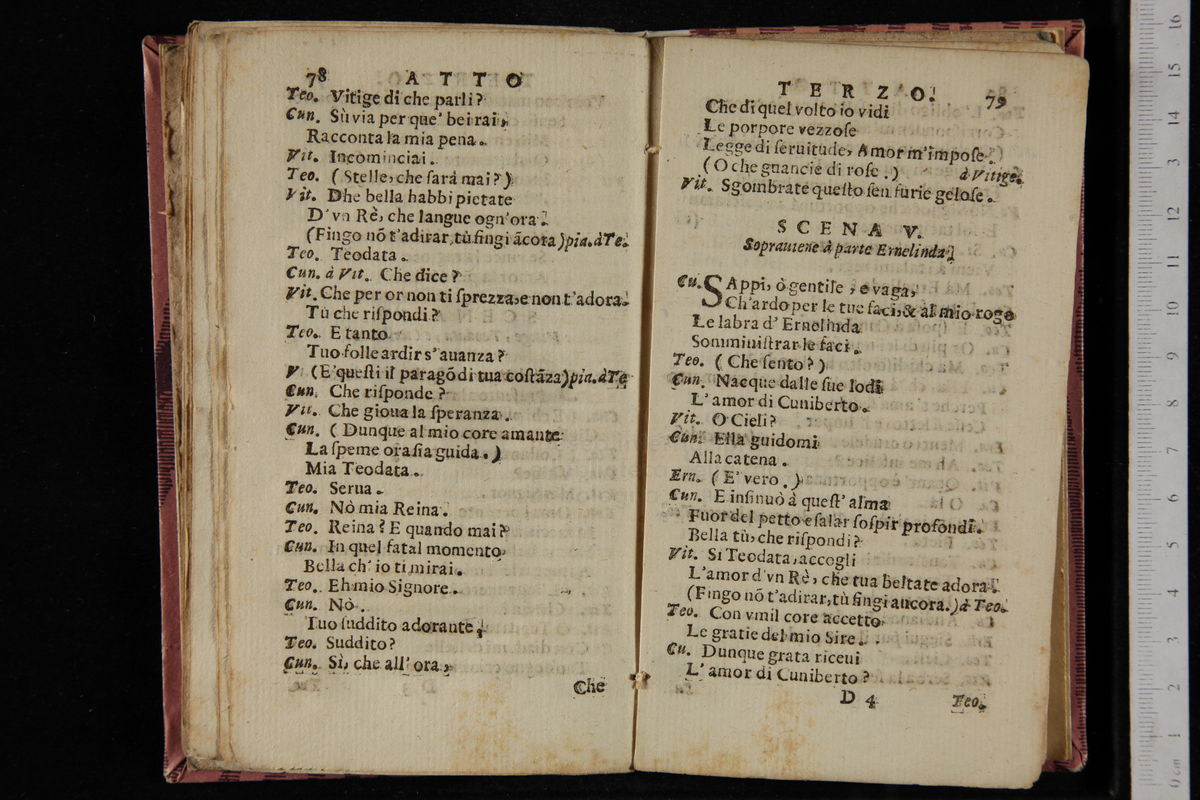 78 ATTO
Teo. Vitige di che parli?
Cun. Sù via per que' bei rai,
Racconta la mia pena.
Vit. Incominciai.
Teo. (Stelle, che sarà mai?)
Vit. Dhe bella habbi pietate
D'vn Rè, che langue ogn'ora.
(Fingo nõ t'adirar, tù fingi ãcora) pia. à Te.
Teo. Teodata.
Cun. à Vit. Che dice?
Vit. Che per or non ti sprezza, e non t'adora.
Tù che rispondi?
Teo. E tanto
Tuo folle ardir s'auanza?
V (E' questi il paragõ di tua costãza) pia. à Te
Cun. Che risponde?
Vit. Che gioua la speranza.
Cun. (Dunque al mio core amante
La speme ora sia guida.)
Mia Teodata.
Teo. Serua.
Cun. Nò mia Reina.
Teo. Reina? E quando mai?
Cun. In quel fatal momento
Bella ch'io ti mirai.
Teo. Eh mio Signore.
Cun. Nò.
Tuo suddito adorante.
Teo. Suddito?
Cun. Sì, che all'ora,
Che
TERZO. 79
Che di quel volto io vidi
Le porpore vezzose
Legge di seruitude, Amor m'impose.
(O che guancie di rose.) à Vitige.
Vit. Sgombrate questo sen furie gelose.
SCENA V.
Soprauiene à parte Ernelinda.
Cu. SAppi, ò gentile, e vaga,
Ch'ardo per le tue faci, & al mio rogo
Le labra d'Ernelinda
Somministrar le faci.
Teo. (Che sento?)
Cun. Nacque dalle sue lodi
L'amor di Cuniberto.
Vit. O Cieli?
Cun. Ella guidomi
Alla catena.
Ern. (E' vero.)
Cun. E insinuò à quest'alma
Fuor del petto esalar sospir profondi.
Bella tù, che rispondi?
Vit. Si Teodata, accogli
L'amor d'vn Rè, che tua beltate adora.
(Fingo nõ t'adirar, tù fingi ancora.) à Teo.
Teo. Con vmil core accetto
Le gratie del mio Sire.
Cu. Dunque grata riceui
L'amor di Cuniberto?
D 4 Teo.